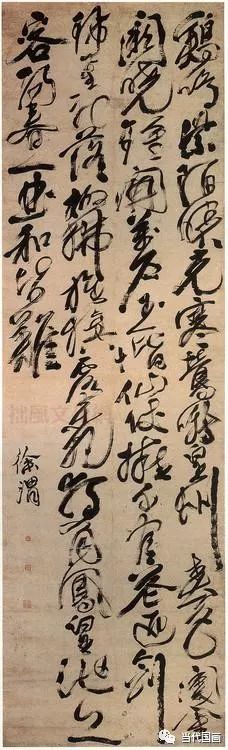 鷄鳴紫陌曙光寒鶯囀皇州春色闌金
闕曉鐘開萬戶玉階仙仗擁千官花迎劍
珮星初落柳拂旌旗露未乾獨有鳳凰池上
客陽春一曲和皆難
徐渭
当代国画